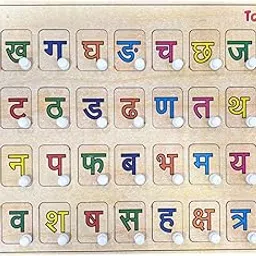 To
ख ग घ ङ च छ ज
ट ठ ड ढ ण त थ
न प फ ब भ म य
व श ष स ह क्ष त्र